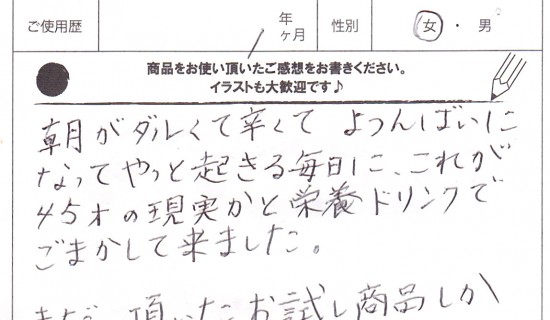 ご使用歴 年 ヶ月 性別 女 ・ 男
商品をお使い頂いたご感想をお書きください。
イラストも大歓迎です♪
朝がダルくて辛くて よつんばいに
なってやっと起きる毎日に、これが
45才の現実かと栄養ドリンクで
ごまかして来ました。
まだ 頂いたお試し商品しか